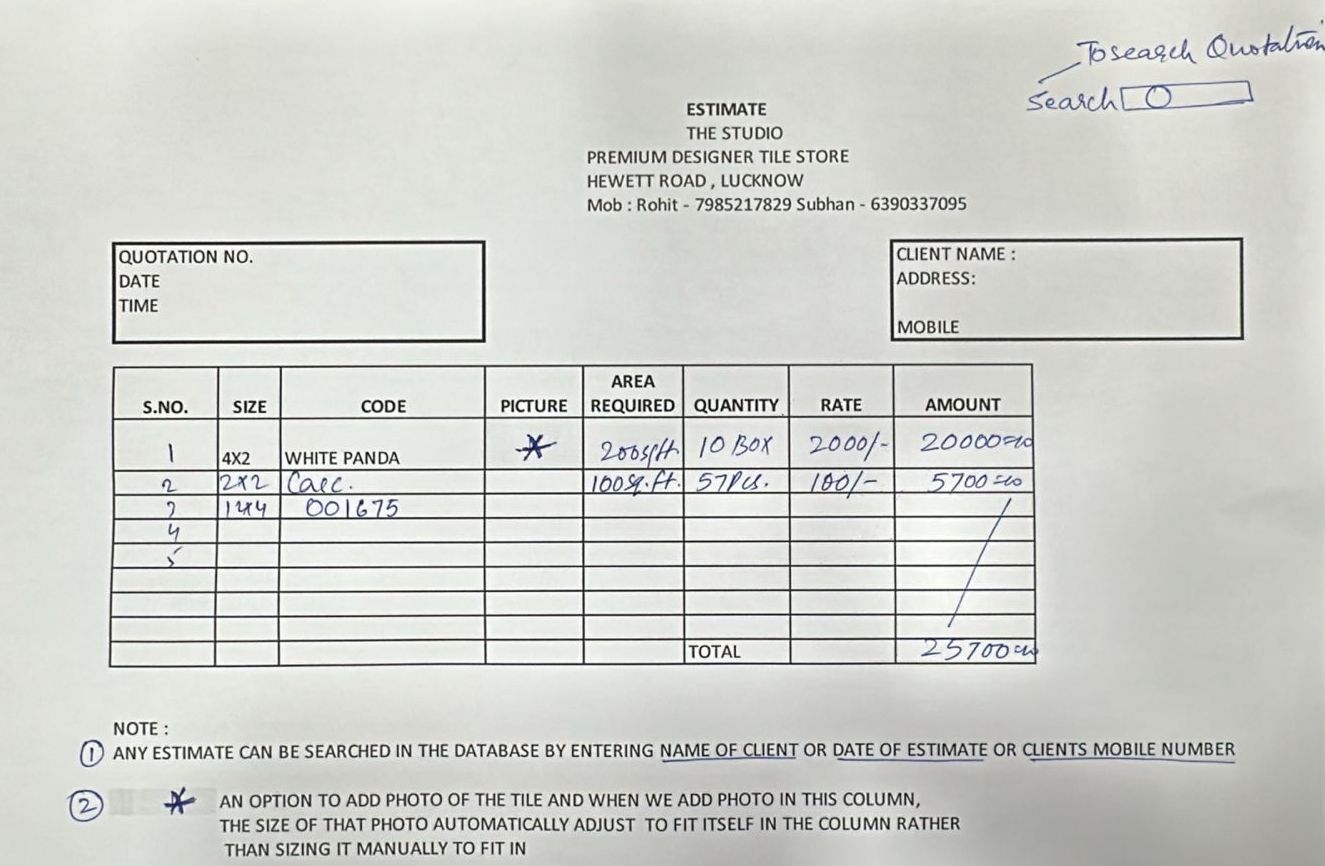 To search Quotation
Search
ESTIMATE
THE STUDIO
PREMIUM DESIGNER TILE STORE
HEWETT ROAD , LUCKNOW
Mob : Rohit - 7985217829 Subhan - 6390337095
QUOTATION NO.
DATE
TIME
CLIENT NAME :
ADDRESS:
MOBILE
S.NO. SIZE CODE PICTURE AREA REQUIRED QUANTITY RATE AMOUNT
1 4X2 WHITE PANDA * 200sqft 10 BOX 2000/- 20000=00
2 2X2 100sq.ft. 57Pcs. 100/- 5700=00
3 1X4 001675
4
5
TOTAL 25700=00
NOTE :
① ANY ESTIMATE CAN BE SEARCHED IN THE DATABASE BY ENTERING NAME OF CLIENT OR DATE OF ESTIMATE OR CLIENTS MOBILE NUMBER
② * AN OPTION TO ADD PHOTO OF THE TILE AND WHEN WE ADD PHOTO IN THIS COLUMN,
THE SIZE OF THAT PHOTO AUTOMATICALLY ADJUST TO FIT ITSELF IN THE COLUMN RATHER
THAN SIZING IT MANUALLY TO FIT IN